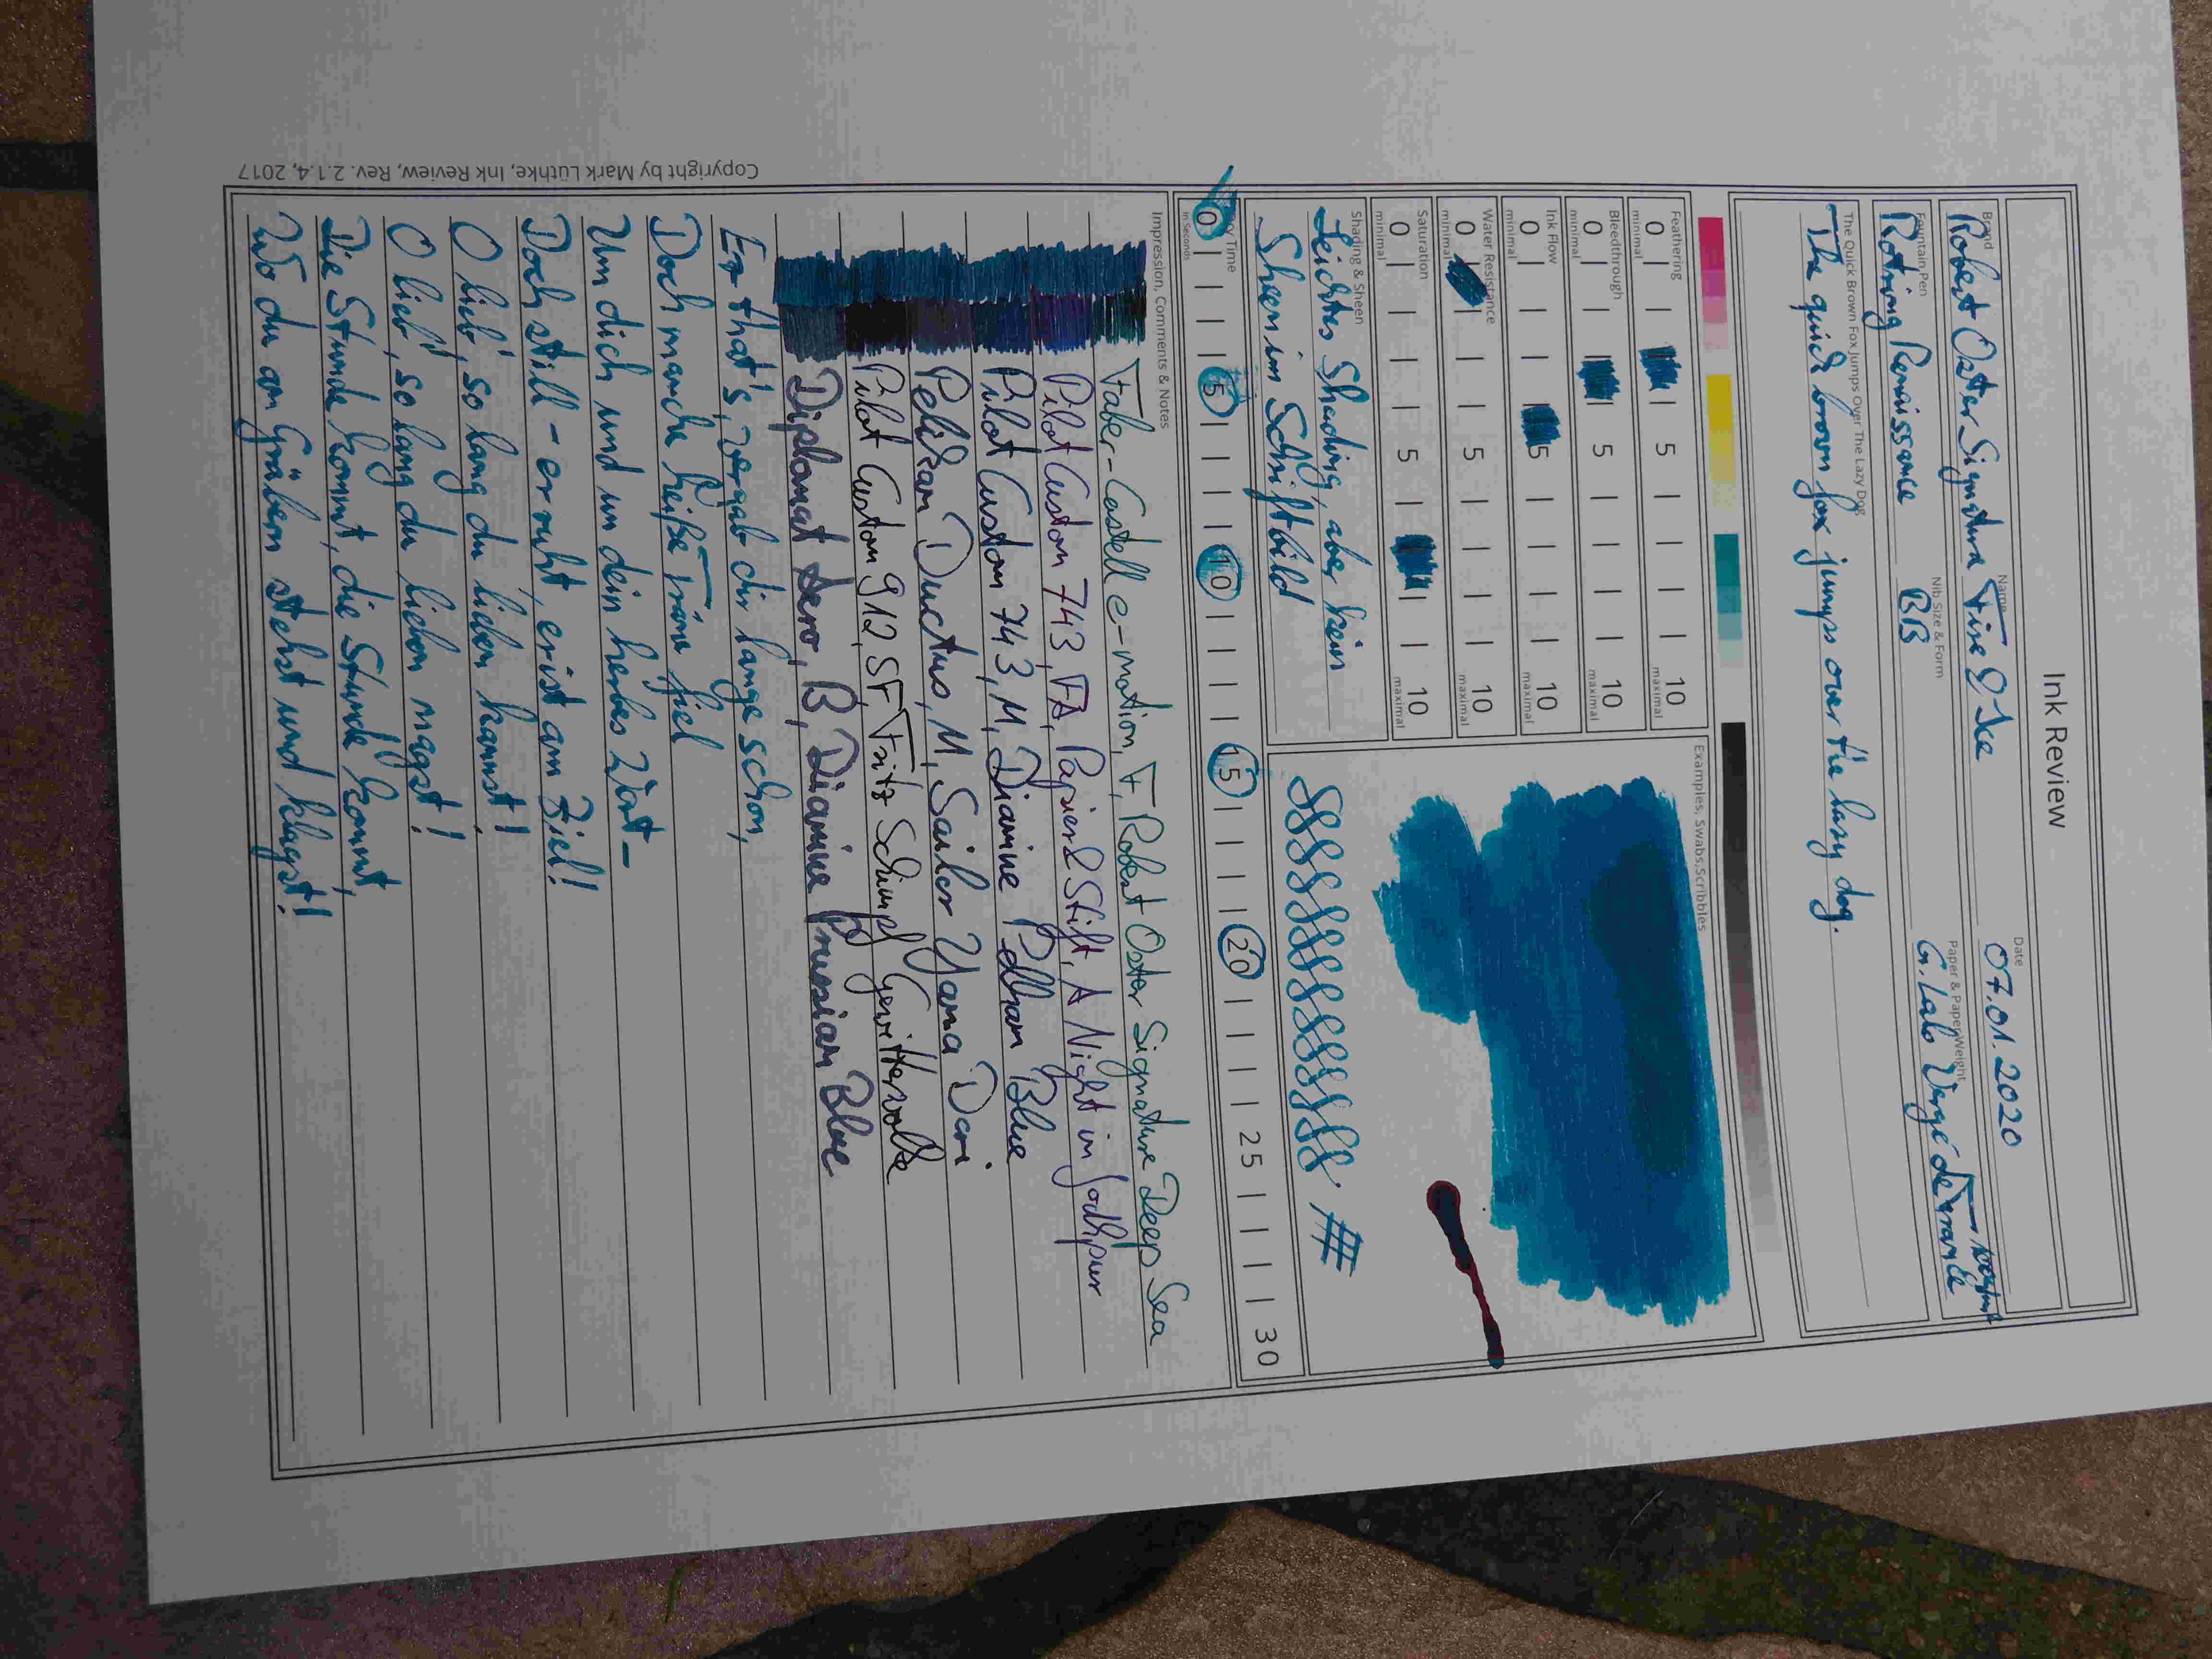 Ink Review
Brand Name Date
Robert Oster Signature Fire & Ice 07.01.2020
Fountain Pen Nib Size & Form Paper & Paper Weight
Rotring Renaissance BB G. Lalo Vergé de France
The Quick Brown Fox Jumps Over The Lazy Dog
The quick brown fox jumps over the lazy dog.
Feathering
0 5 10
minimal maximal
Bleedthrough
0 5 10
minimal maximal
Ink Flow
0 5 10
minimal maximal
Water Resistance
0 5 10
minimal maximal
Saturation
0 5 10
minimal maximal
Shading & Sheen
Leichtes Shading, aber kein
Sheen im Schriftbild
Examples, Swabs, Scribbles
Dry Time
0 5 10 15 20 25 30
in Seconds
Impression, Comments & Notes
Faber-Castell e-motion, F, Robert Oster Signature Deep Sea
Pilot Custom 743, FA, Papier & Stift, A Night in Jodhpur
Pilot Custom 743, M, Diamine Pelham Blue
Pelikan Ductus, M, Sailor Yama Dori
Pilot Custom 912, SF, Fritz Schimpf Gewitterwolke
Diplomat Aero, B, Diamine Prussian Blue
Er that's, vergab dir lange schon,
Doch manche heiße Träne fiel
Um dich und um dein herbes Wort –
Doch still – er ruht, er ist am Ziel!
O lieb', so lang du lieben kannst!
O lieb', so lang du lieben magst!
Die Stunde kommt, die Stunde kommt,
Wo du an Gräbern stehst und klagst!
Copyright by Mark Lüthke, Ink Review, Rev. 2.1.4, 2017